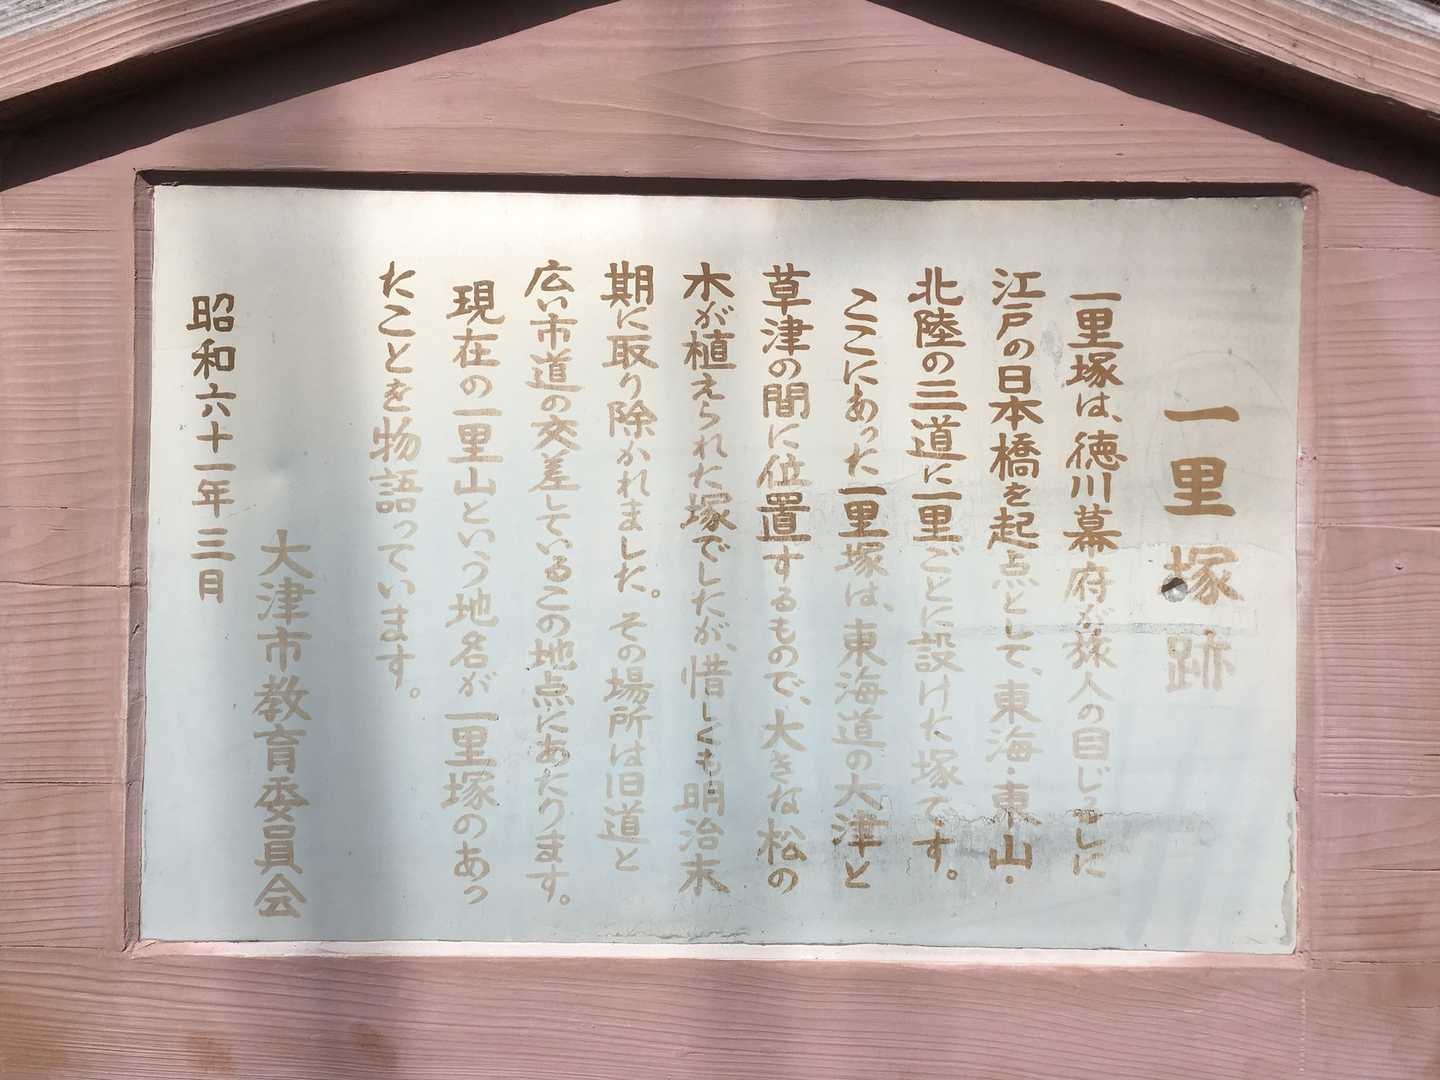 一里塚跡
一里塚は、徳川幕府が旅人の目じるしに
江戸の日本橋を起点として、東海・東山・
北陸の三道に一里ごとに設けた塚です。
ここにあった一里塚は、東海道の大津と
草津の間に位置するもので、大きな松の
木が植えられた塚でしたが、惜しくも明治末
期に取り除かれました。その場所は旧道と
広い市道の交差しているこの地点にあたります。
現在の一里山という地名が一里塚のあっ
たことを物語っています。
大津市教育委員会
昭和六十一年三月